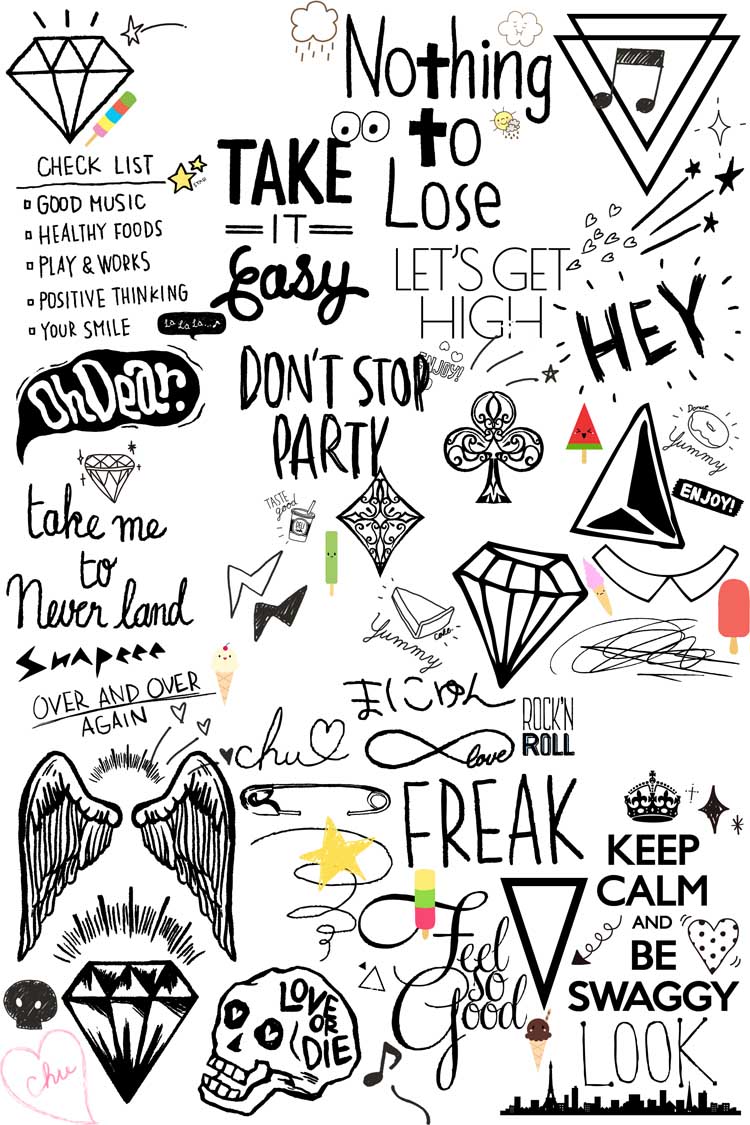 Nothing
to
Lose
CHECK LIST
GOOD MUSIC
HEALTHY FOODS
PLAY & WORKS
POSITIVE THINKING
YOUR SMILE
La La La...♪
TAKE
IT
Easy
LET'S GET
HIGH
HEY
Oh Dear.
DON'T STOP
PARTY
ENJOY!
Donut
Yummy
ENJOY!
take me
to
Never land
TASTE
good
Yummy
cake
OVER AND OVER
AGAIN
chu
love
ROCK'N
ROLL
FREAK
KEEP
CALM
AND
BE
SWAGGY
Feel
so
Good
LOVE
OR
DIE
LOOK
chu